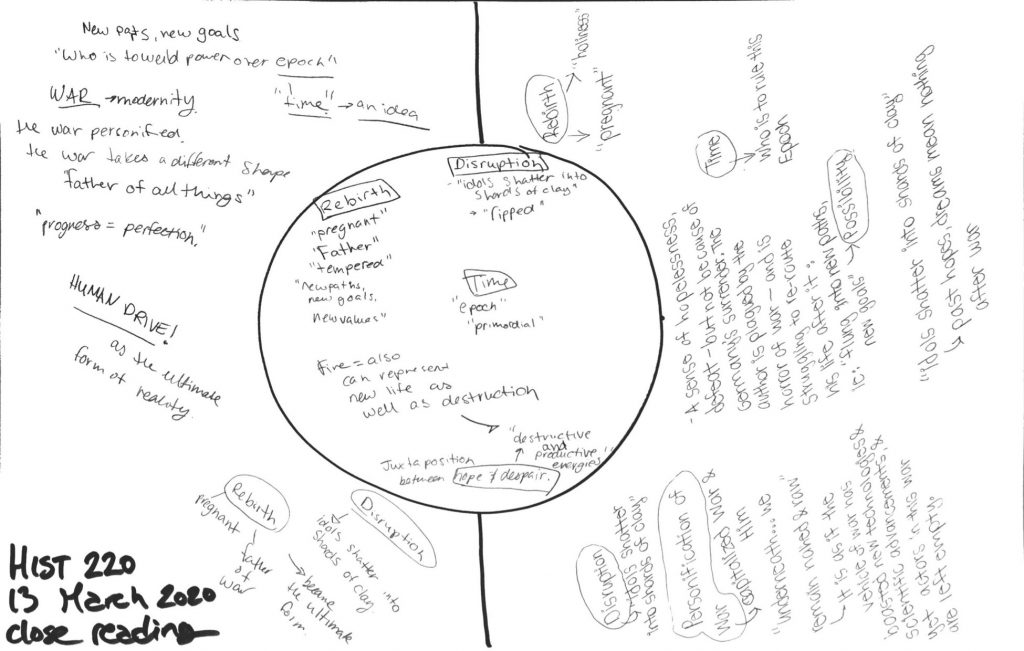 New paths, new goals
"Who is to weild power over epoch"
"time" → an idea
WAR → modernity.
the war personified.
the war takes a different shape
"father of all things"
"progress = perfection."
HUMAN DRIVE!
as the ultimate
form of reality.
Rebirth
"holiness"
"pregnant"
Time
who is to rule this
Epoch
Disruption
- "idols shatter into
shards of clay"
→ "ripped"
Rebirth
"pregnant"
"Father"
"tempered"
"new paths,
new goals,
new values"
Time
"epoch"
"primordial"
Fire = also
can represent
new life as
well as destruction
"destructive
and
productive
energies"
Juxtaposition
between hope & despair.
- A sense of hopelessness,
defeat - but not because of
Germany's surrender. The
author is plagued by the
horror of war - and is
struggling to re-route
his life after it.
ie: "flung into new paths,
new goals" → possibility
"idols shatter into shards of clay"
↳ past hopes, dreams mean nothing
after war
Rebirth
pregnant
father
of
war
became
the ultimate
form.
Disruption
idols shatter into
shards of clay
Disruption
"idols shatter
into shards of clay"
Personification of
War
↳ capitalized War &
Him
"underneath... we
remain naked & raw"
↳ It is as if the
vehicle of war has
boosted new technologies &
scientific advancements, &
yet actors in this war
are left empty.
HIST 220
13 March 2020
close reading